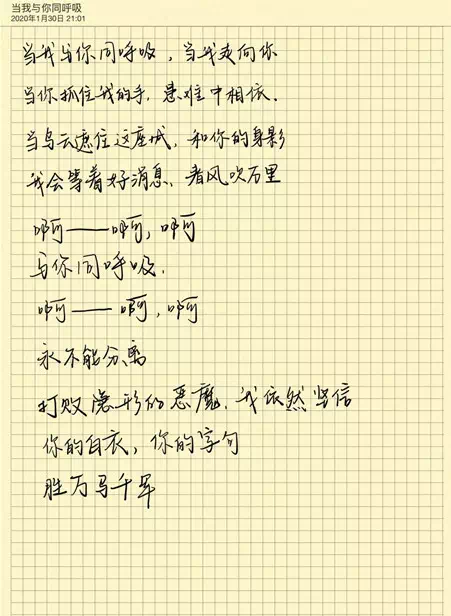 当我与你同呼吸
2020年1月30日 21:01
当我与你同呼吸，当我走向你
当你抓住我的手，患难中相依．
当乌云遮住这座城，和你的身影
我会等着好消息，春风吹万里
啊——啊，啊
与你同呼吸．
啊——啊，啊
永不能分离
打败隐形的恶魔，我依然坚信
你的白衣，你的字句
胜万马千军